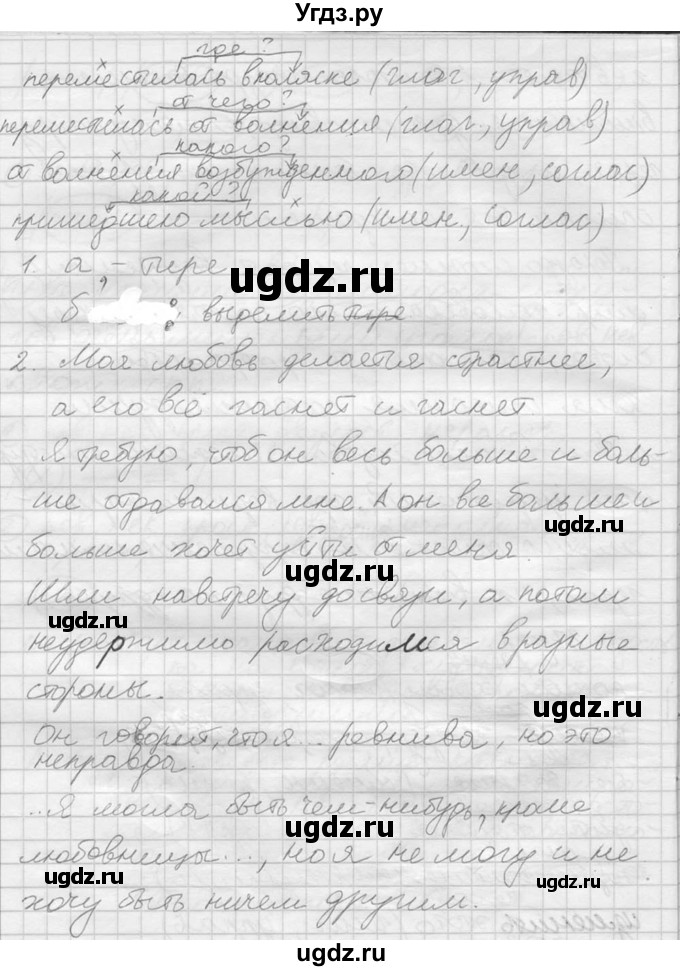 Угдз.ру
где?
переместилась в коляске (глаг, управ)
от чего?
переместилась от волнения (глаг., управ)
какого?
от волнения возбужденного (имен, соглас)
какой?
пришедшею мыслью (имен, соглас)
1. а - тире
ugdz.ru
б , : выделить тире
2. Моя любовь делается страстнее,
а его всё гаснет и гаснет.
Я требую, чтоб он весь больше и боль-
ше отдавался мне. А он все больше и
ugdz.ru
больше хочет уйти от меня.
ugdz.ru
Шли навстречу до связи, а потом
ugdz.ru
неудержимо расходимся в разные
стороны.
ugdz.ru
Он говорит, что я... ревнива, но это
неправда.
...Я могла быть чем-нибудь, кроме
ugdz.ru
любовницы..., но я не могу и не
ugdz.ru
ugdz.ru
хочу быть ничем другим.
ugdz.ru